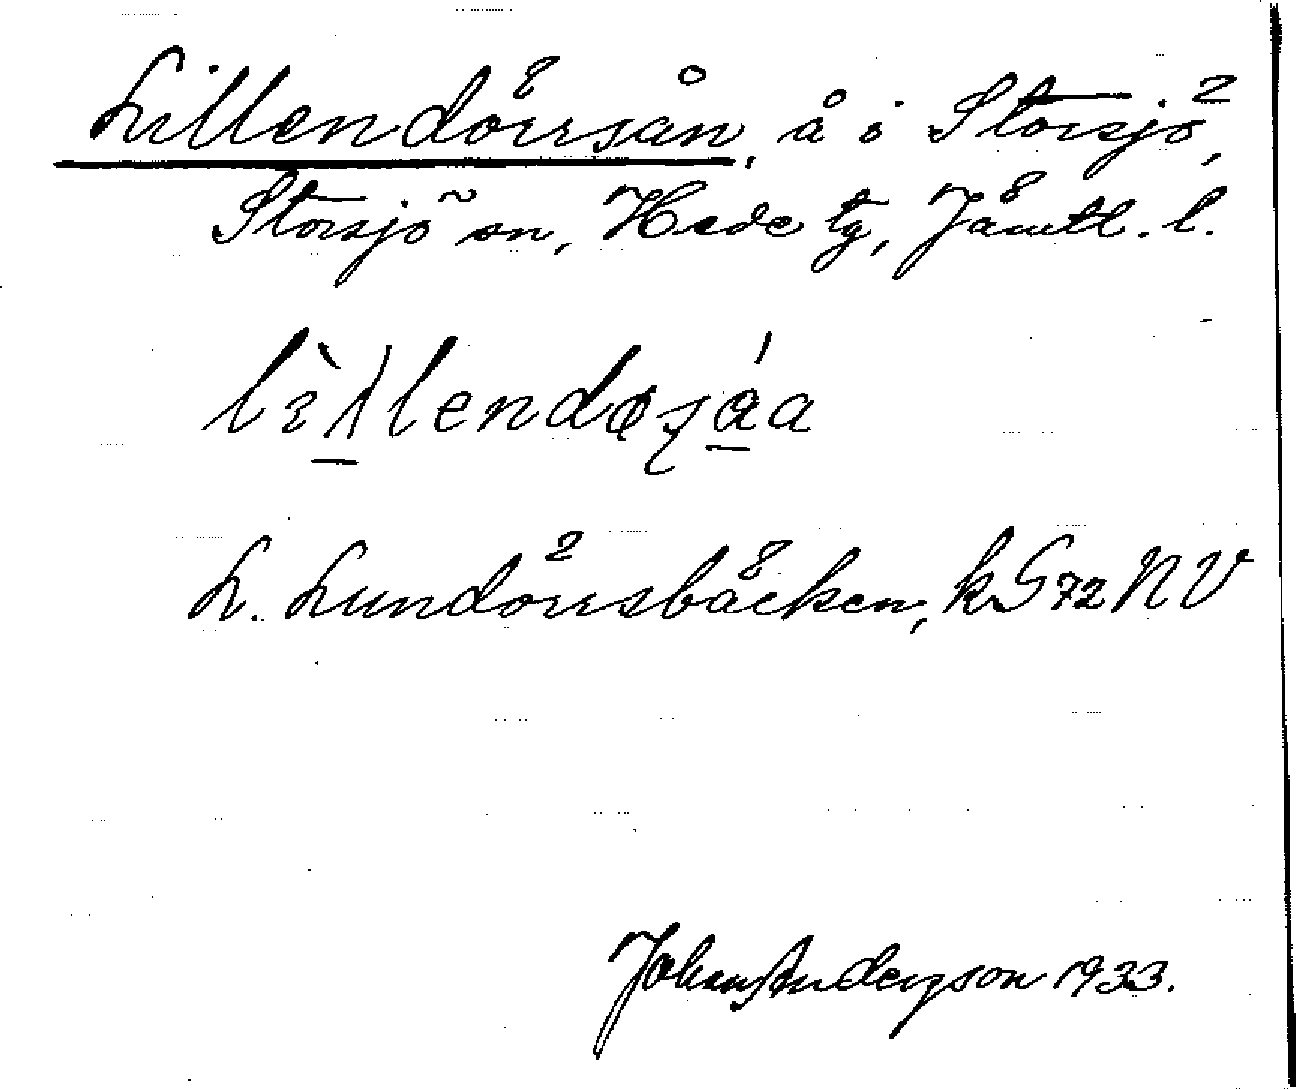 Lillendörrsån, å i Storsjö,
Storsjö sn, Hede tg, Jämtl. l.
L. Lundörrsbäcken, kS 72 NV
Johan Anderson 1933.